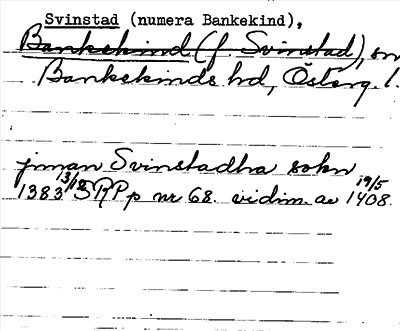 Svinstad (numera Bankekind),
Bankekind (f. Svinstad), sn
Bankekinds hd, Österg. l.
jnnan Svinstadha sokn
1383 13/12 SRPp nr 68. vidim. av 19/5 1408.